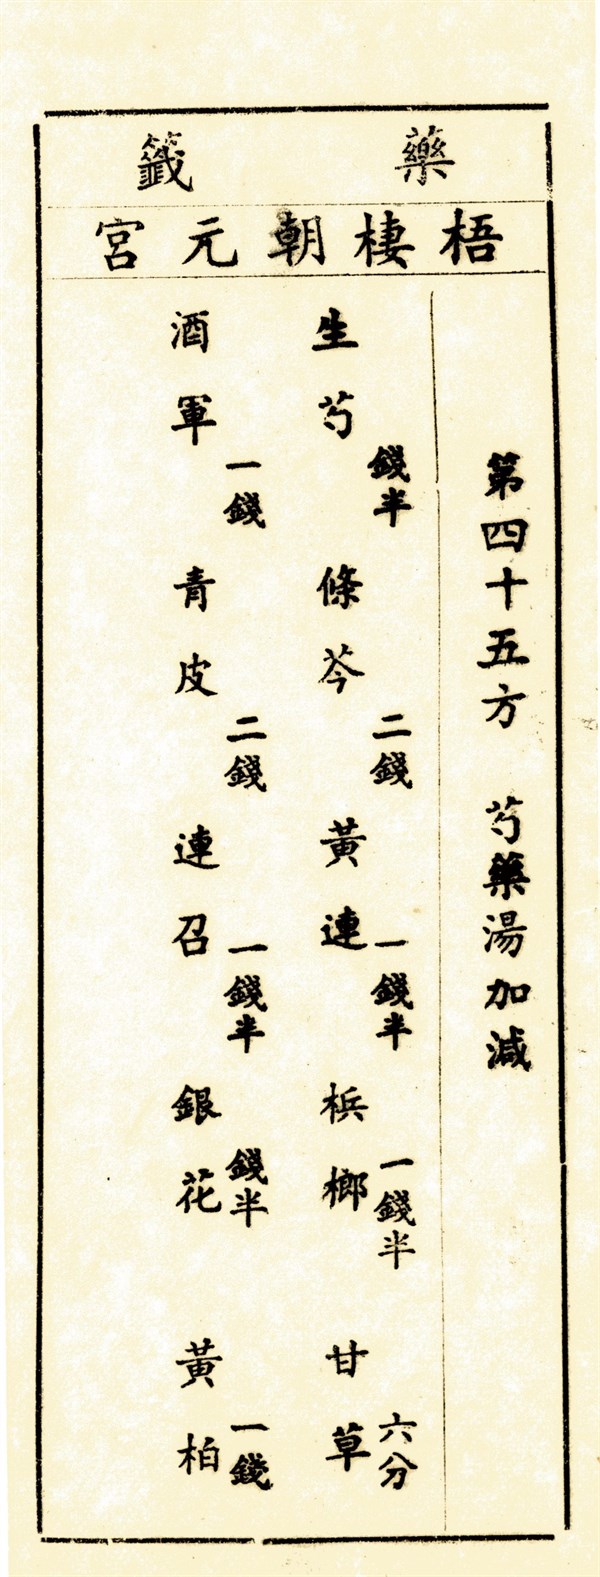 藥籤
梧棲朝元宮
第四十五方 芍藥湯加減
生芍 錢半 條芩 二錢 黃連 一錢半 梹榔 一錢半 甘草 六分
酒軍 一錢 青皮 二錢 連召 一錢半 銀花 錢半 黃柏 一錢